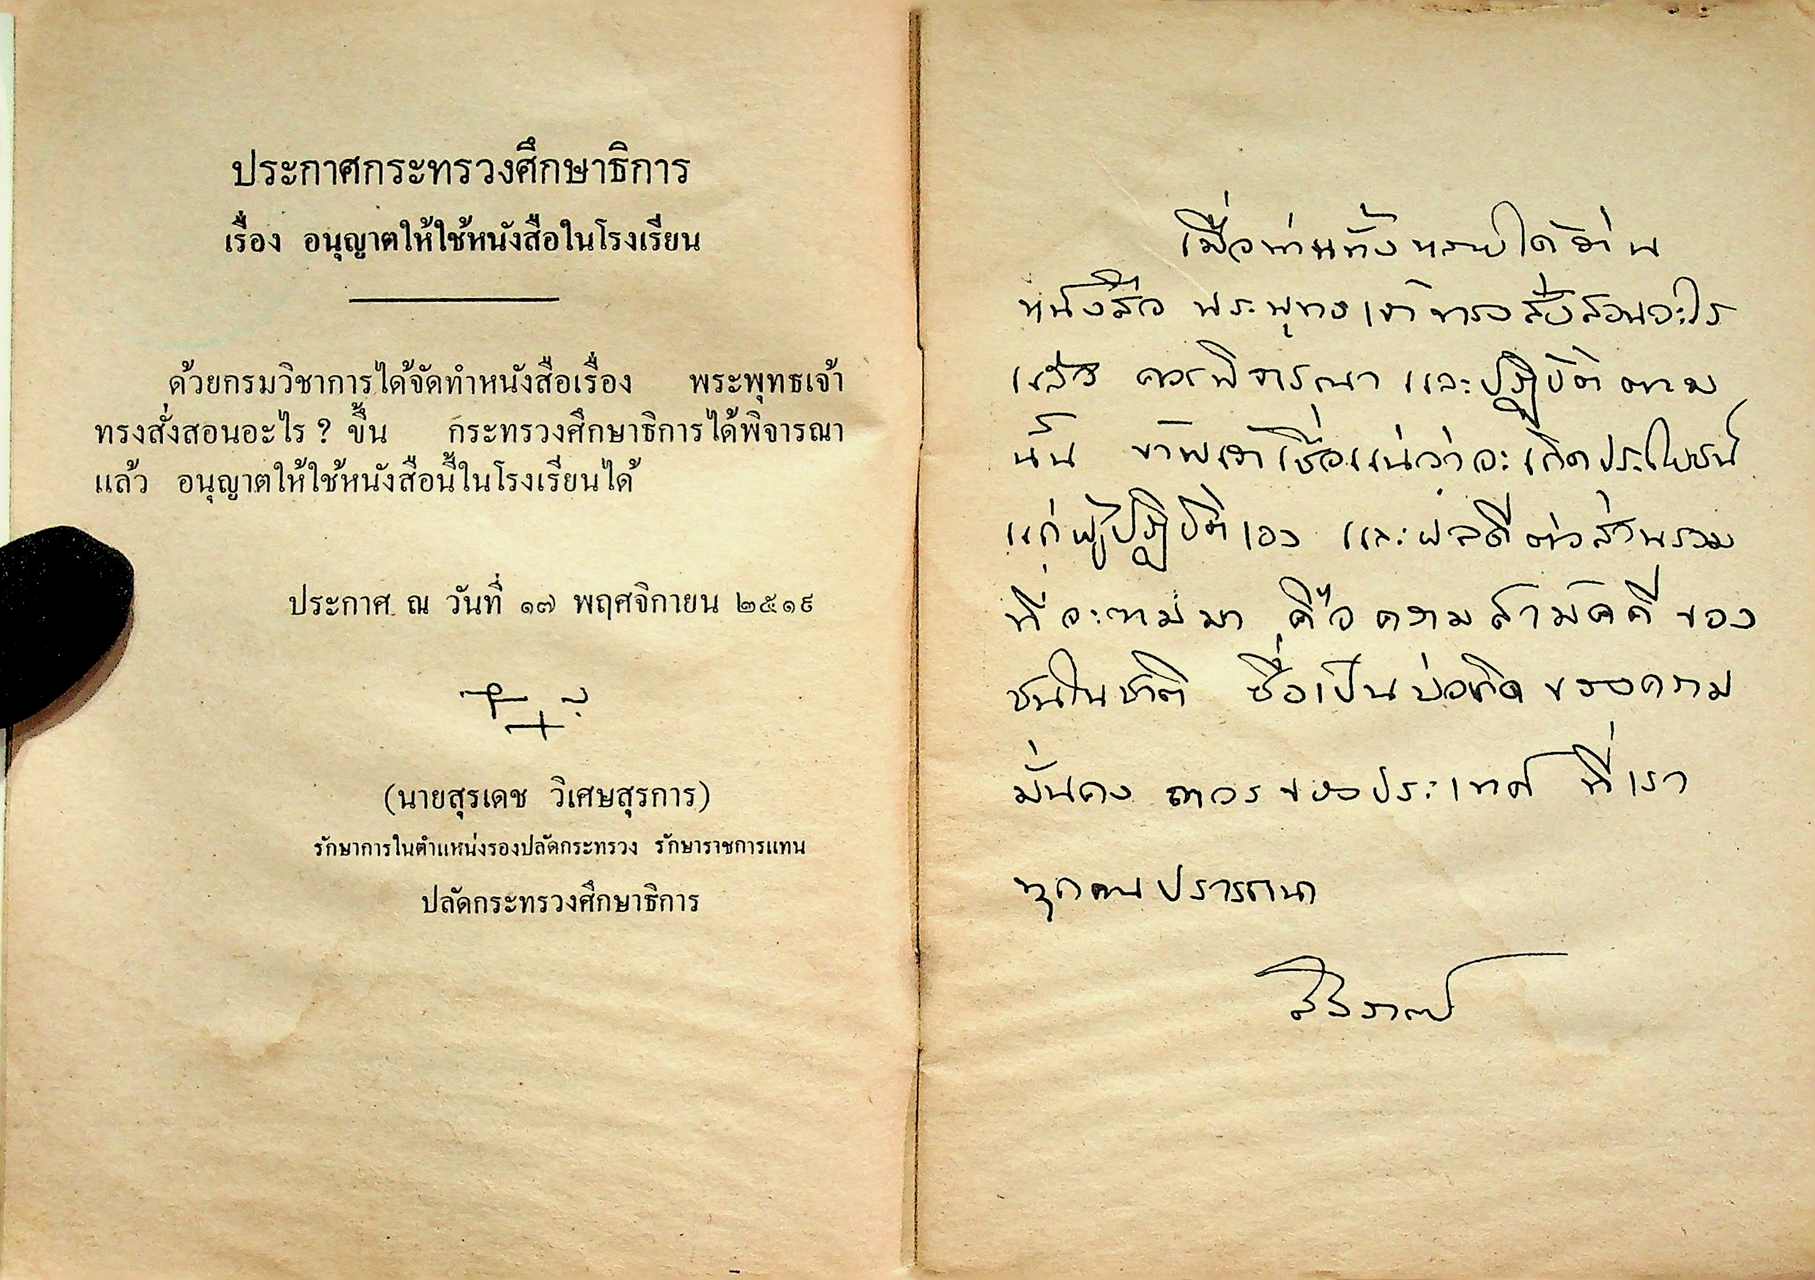 ประกาศกระทรวงศึกษาธิการ
เรื่อง อนุญาตให้ใช้หนังสือในโรงเรียน
ด้วยกรมวิชาการได้จัดทำหนังสือเรื่อง พระพุทธเจ้า
ทรงสั่งสอนอะไร ? ขึ้น กระทรวงศึกษาธิการได้พิจารณา
แล้ว อนุญาตให้ใช้หนังสือนี้ในโรงเรียนได้
ประกาศ ณ วันที่ ๑๗ พฤศจิกายน ๒๕๑๙
(นายสุรเดช วิเศษสุรการ)
รักษาการในตำแหน่งรองปลัดกระทรวง รักษาราชการแทน
ปลัดกระทรวงศึกษาธิการ
เมื่อท่านทั้งหลายได้อ่าน
หนังสือ พระพุทธเจ้าทรงสั่งสอนอะไร
แล้ว ควรพิจารณา และปฏิบัติตาม
นั้น ข้าพเจ้าเชื่อแน่ว่าจะเกิดประโยชน์
แก่ผู้ปฏิบัติเอง และผลดีต่อส่วนรวม
ที่จะตามมา คือความสามัคคีของ
ชนในชาติ ซึ่งเป็นบ่อเกิดของความ
มั่นคง ถาวรของประเทศ ที่เรา
ทุกคนปรารถนา